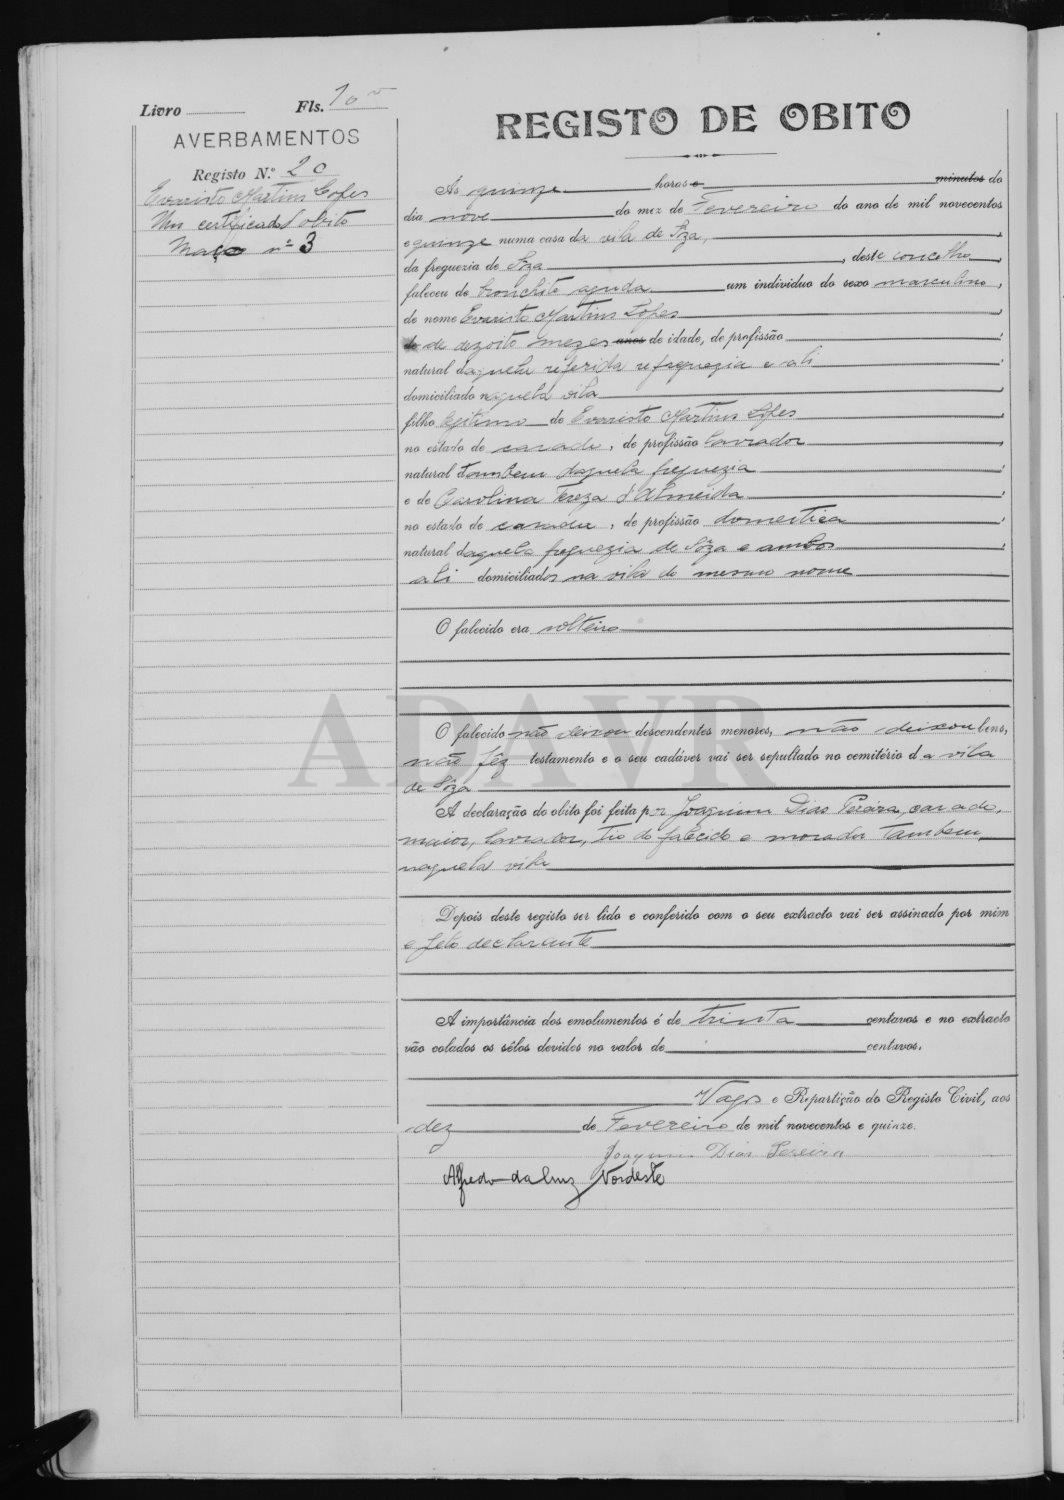 Livro Fls. 10 v
AVERBAMENTOS
Registo N.º 20
Evaristo Martins Lopes
Um certificado d'obito
Maço nº 3
REGISTO DE OBITO
As quinze horas e minutos do
dia nove do mez de Fevereiro do ano de mil novecentos
e quinze numa casa da vila de Sôza,
da freguezia de Sôza, deste concelho,
faleceu de bronchite aguda um individuo do sexo masculino,
de nome Evaristo Martins Lopes,
de de dezoito mezes anos de idade, de profissão
natural daquela referida freguezia e ali
domiciliado naquela vila
filho legitimo de Evaristo Martins Lopes
no estado de casado, de profissão lavrador
natural tambem daquela freguezia
e de Carolina Tereza d'Almeida
no estado de casada, de profissão domestica
natural daquela freguezia de Sôza e ambos
ali domiciliados na vila do mesmo nome
O falecido era solteiro
O falecido não deixou descendentes menores, não deixou bens,
não fêz testamento e o seu cadáver vai ser sepultado no cemitério da vila
de Sôza
A declaração do obito foi feita por Joaquim Dias Pereira, casado,
maior, lavrador, tio do falecido e morador tambem
naquela vila
Depois deste registo ser lido e conferido com o seu extracto vai ser assinado por mim
e pelo declarante
A importância dos emolumentos é de trinta centavos e no extracto
vão colados os sêlos devidos no valor de centavos.
Vagos e Repartição do Registo Civil, aos
dez de Fevereiro de mil novecentos e quinze.
Joaquim Dias Pereira
Alfredo da Cruz Nordeste
ADAVR